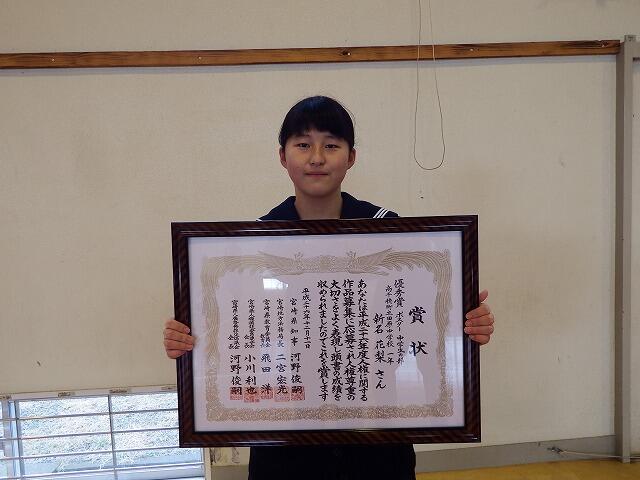 賞状
優秀賞 ポスター 中学生の部
高千穂町立田原中学校 一年
新名 花梨 さん
あなたは平成二十六年度人権に関する
作品募集に応募され人権尊重の
大切さをよく表現し頭書の成績を
収められましたのでこれを賞します
平成二十六年十二月十日
宮崎県知事 河野俊嗣
宮崎地方法務局長 二宮宏光
宮崎県教育委員会 教育長 飛田洋
会長 小川利也
会長 河野俊嗣